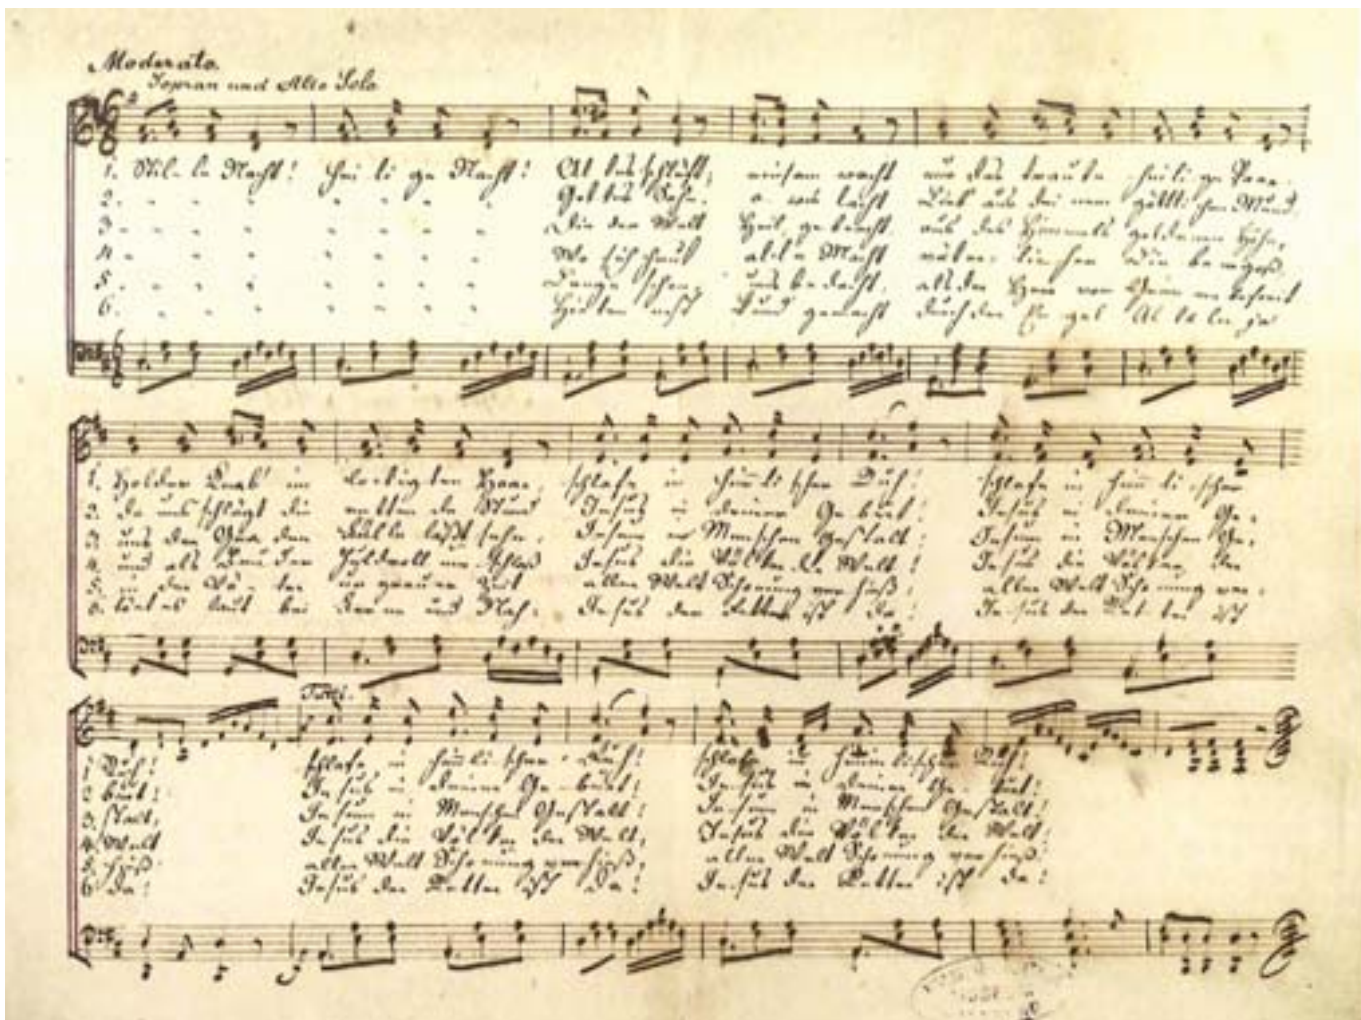 Moderato.
Sopran und Alto Solo
1. Stil-le Nacht! hei li ge Nacht! Al les schläft, einsam wacht nur das traute heili ge Paar.
2. Gottes Sohn, o wie lacht Lieb aus dei nem göttli chen Mund,
3. Die der Welt Heil gebracht aus des Himmels goldenen Höhn,
4. Wo sich heut alle Macht väter licher Liebe ergoß
5. Lange schon uns bedacht, als der Herr vom Grimme befreit
6. Hirten erst kund gemacht durch der En gel Al le lu ja
1. Holder Knab' im lockigten Haar, schlafe in himmli scher Ruh! schlafe in himmli scher
2. da uns schlägt die rettende Stund Jesus in deiner Ge burt! Jesus in deiner Ge-
3. uns der Gna den Fülle läßt sehn, Jesum in Menschen Gestalt! Jesum in Menschen Ge-
4. und als Bruder huldvoll umschloß Jesus die Völker der Welt! Jesus die Völker der
5. in der Vä ter urgrauer Zeit aller Welt Schonung verhieß! aller Welt Schonung ver-
6. tönt es laut bei Ferne und Nah: Jesus der Retter ist da! Jesus der Retter ist
Tutti.
1 Ruh! schlafe in himmli scher Ruh! schlafe in himmlischer Ruh!
2 burt! Jesus in deiner Ge burt! Jesus in deiner Ge burt!
3. stalt, Jesum in Menschen Gestalt! Jesum in Menschen Gestalt!
4. Welt Jesus die Völker der Welt, Jesus die Völker der Welt!
5. hieß aller Welt Schonung verhieß, aller Welt Schonung verhieß!
6 da! Jesus der Retter ist da! Jesus der Retter ist da!